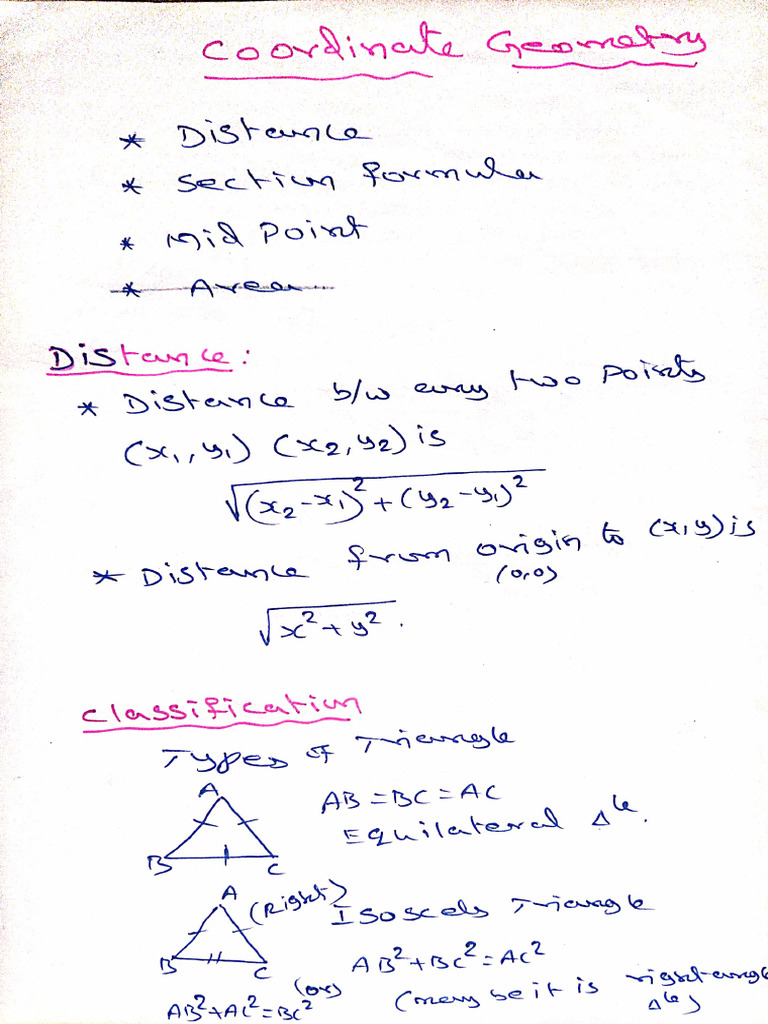 Coordinate Geometry
* Distance
* Section formula
* Mid Point
* Area
Distance:
* Distance b/w every two points
(x₁, y₁) (x₂, y₂) is
√(x₂-x₁)²+(y₂-y₁)²
* Distance from origin to (x,y) is
(0,0)
√x²+y².
Classification
Types of Triangle
A
AB=BC=AC
Equilateral Δle.
B C
A (Right) Isoscels Triangle
B C
AB²+BC²=AC²
AB²+AC²=BC² (or) (may be it is right-angle
Δle)